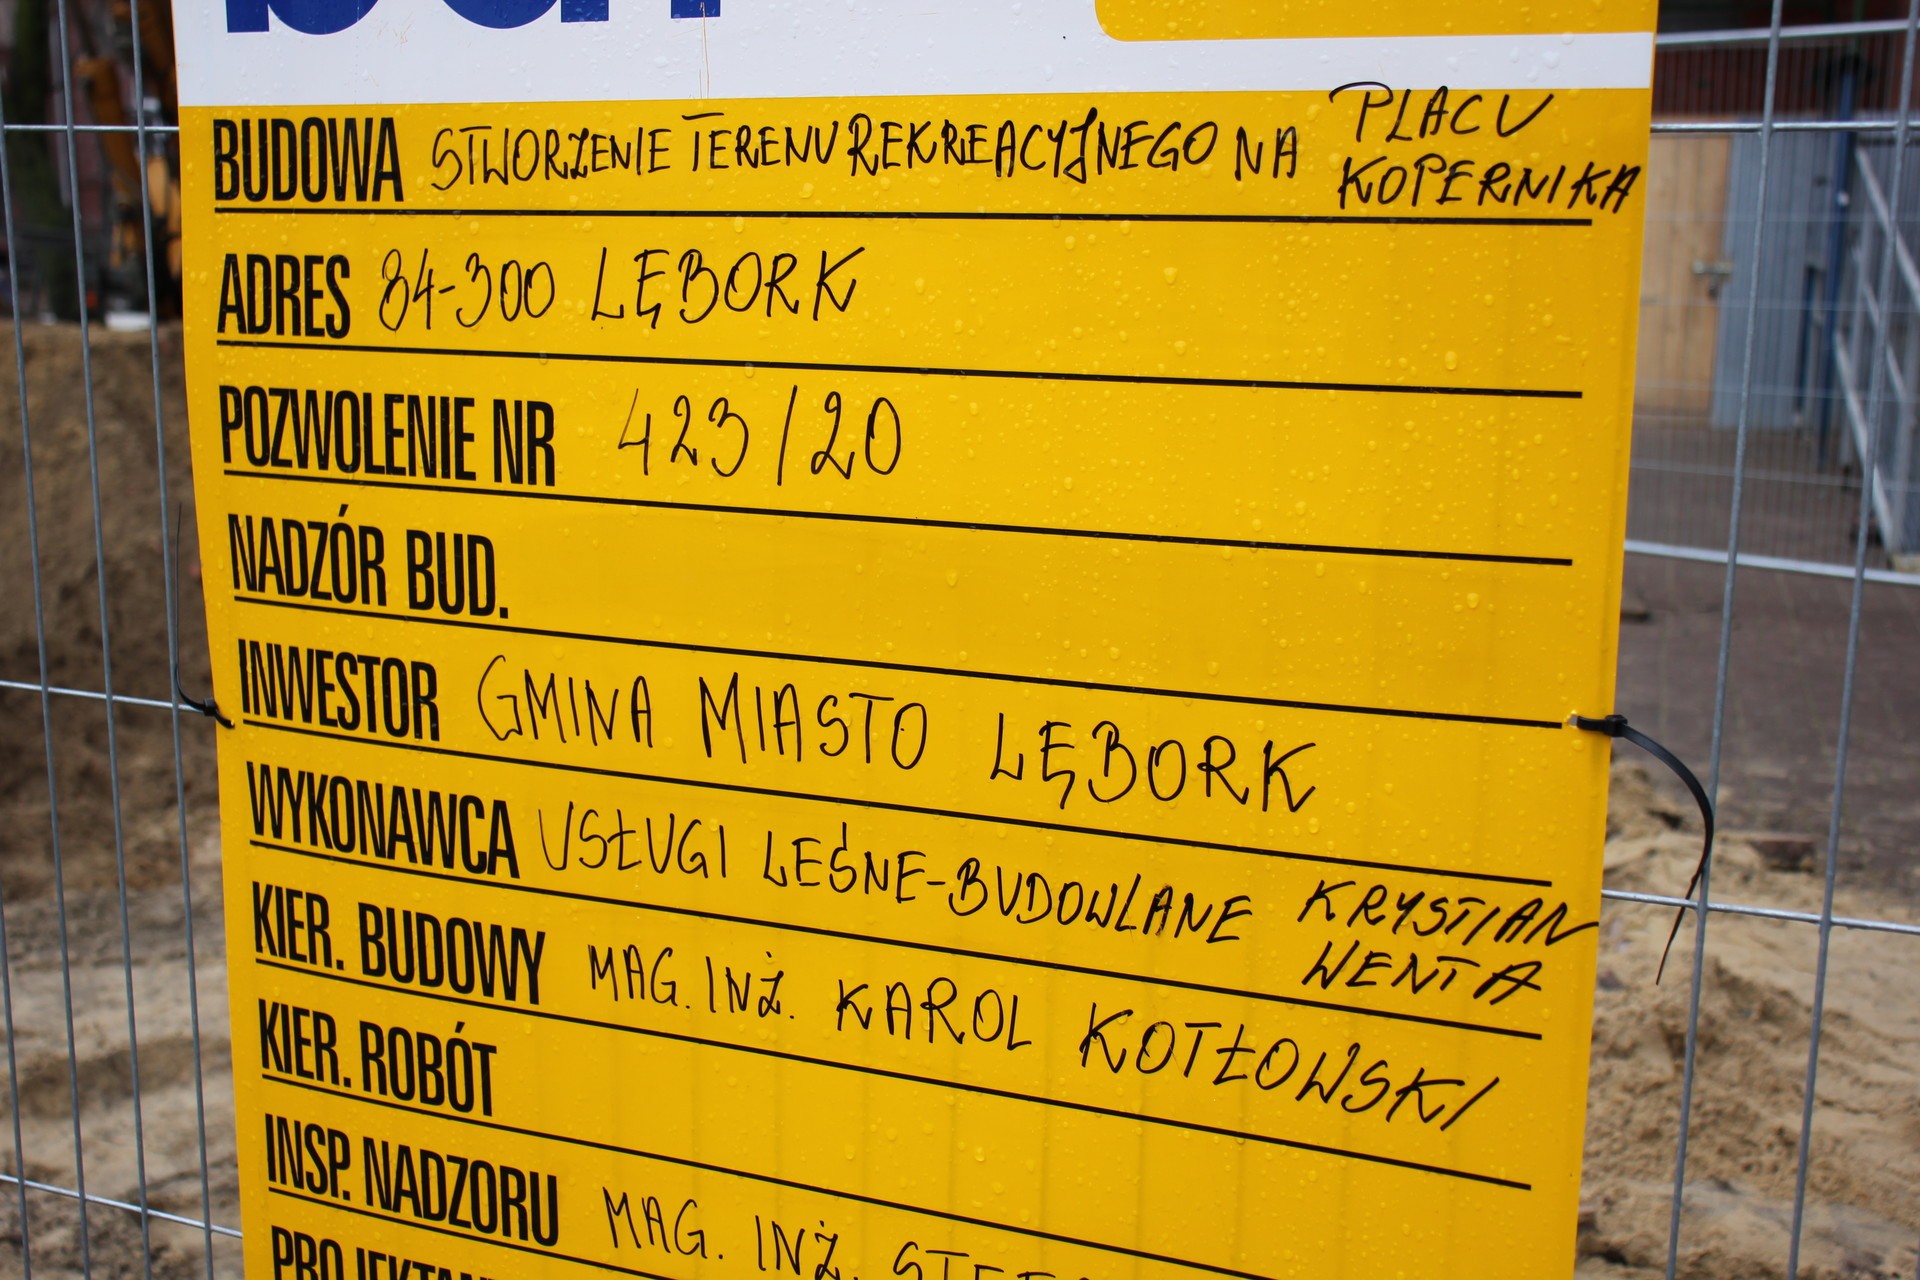 BUDOWA STWORZENIE TERENU REKREACYJNEGO NA PLACU
KOPERNIKA
ADRES 84-300 LĘBORK
POZWOLENIE NR 423/20
NADZÓR BUD.
INWESTOR GMINA MIASTO LĘBORK
WYKONAWCA USŁUGI LEŚNE-BUDOWLANE KRYSTIAN
WENTA
KIER. BUDOWY MAG. INŻ. KAROL KOTŁOWSKI
KIER. ROBÓT
INSP. NADZORU MAG. INŻ.